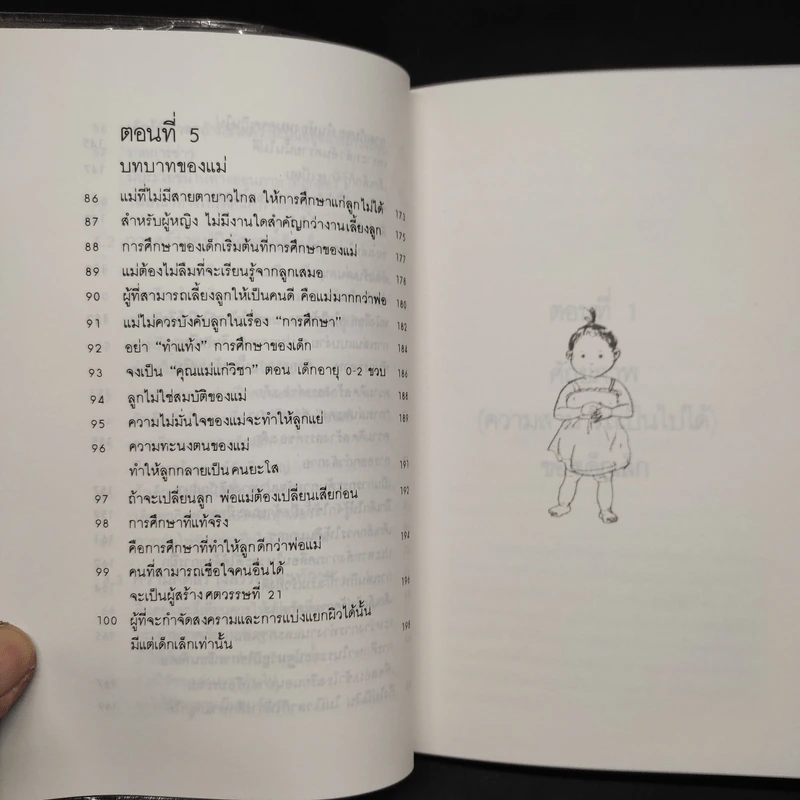 ตอนที่ 5
บทบาทของแม่
86 แม่ที่ไม่มีสายตายาวไกล ให้การศึกษาแก่ลูกไม่ได้ 173
87 สำหรับผู้หญิง ไม่มีงานใดสำคัญกว่างานเลี้ยงลูก 175
88 การศึกษาของเด็กเริ่มต้นที่การศึกษาของแม่ 177
89 แม่ต้องไม่ลืมที่จะเรียนรู้จากลูกเสมอ 178
90 ผู้ที่สามารถเลี้ยงลูกให้เป็นคนดี คือแม่มากกว่าพ่อ 180
91 แม่ไม่ควรบังคับลูกในเรื่อง “การศึกษา” 182
92 อย่า “ทำแท้ง” การศึกษาของเด็ก 184
93 จงเป็น “คุณแม่แก่วิชา” ตอน เด็กอายุ 0-2 ขวบ 186
94 ลูกไม่ใช่สมบัติของแม่ 188
95 ความไม่มั่นใจของแม่จะทำให้ลูกแย่ 189
96 ความทะนงตนของแม่
ทำให้ลูกกลายเป็นคนยะโส 191
97 ถ้าจะเปลี่ยนลูก พ่อแม่ต้องเปลี่ยนเสียก่อน 192
98 การศึกษาที่แท้จริง
คือการศึกษาที่ทำให้ลูกดีกว่าพ่อแม่ 194
99 คนที่สามารถเชื่อใจคนอื่นได้
จะเป็นผู้สร้างศตวรรษที่ 21 196
100 ผู้ที่จะกำจัดสงครามและการแบ่งแยกผิวได้นั้น
มีแต่เด็กเล็กเท่านั้น 198
ตอนที่ 1
(ความ เป็นไปได้)